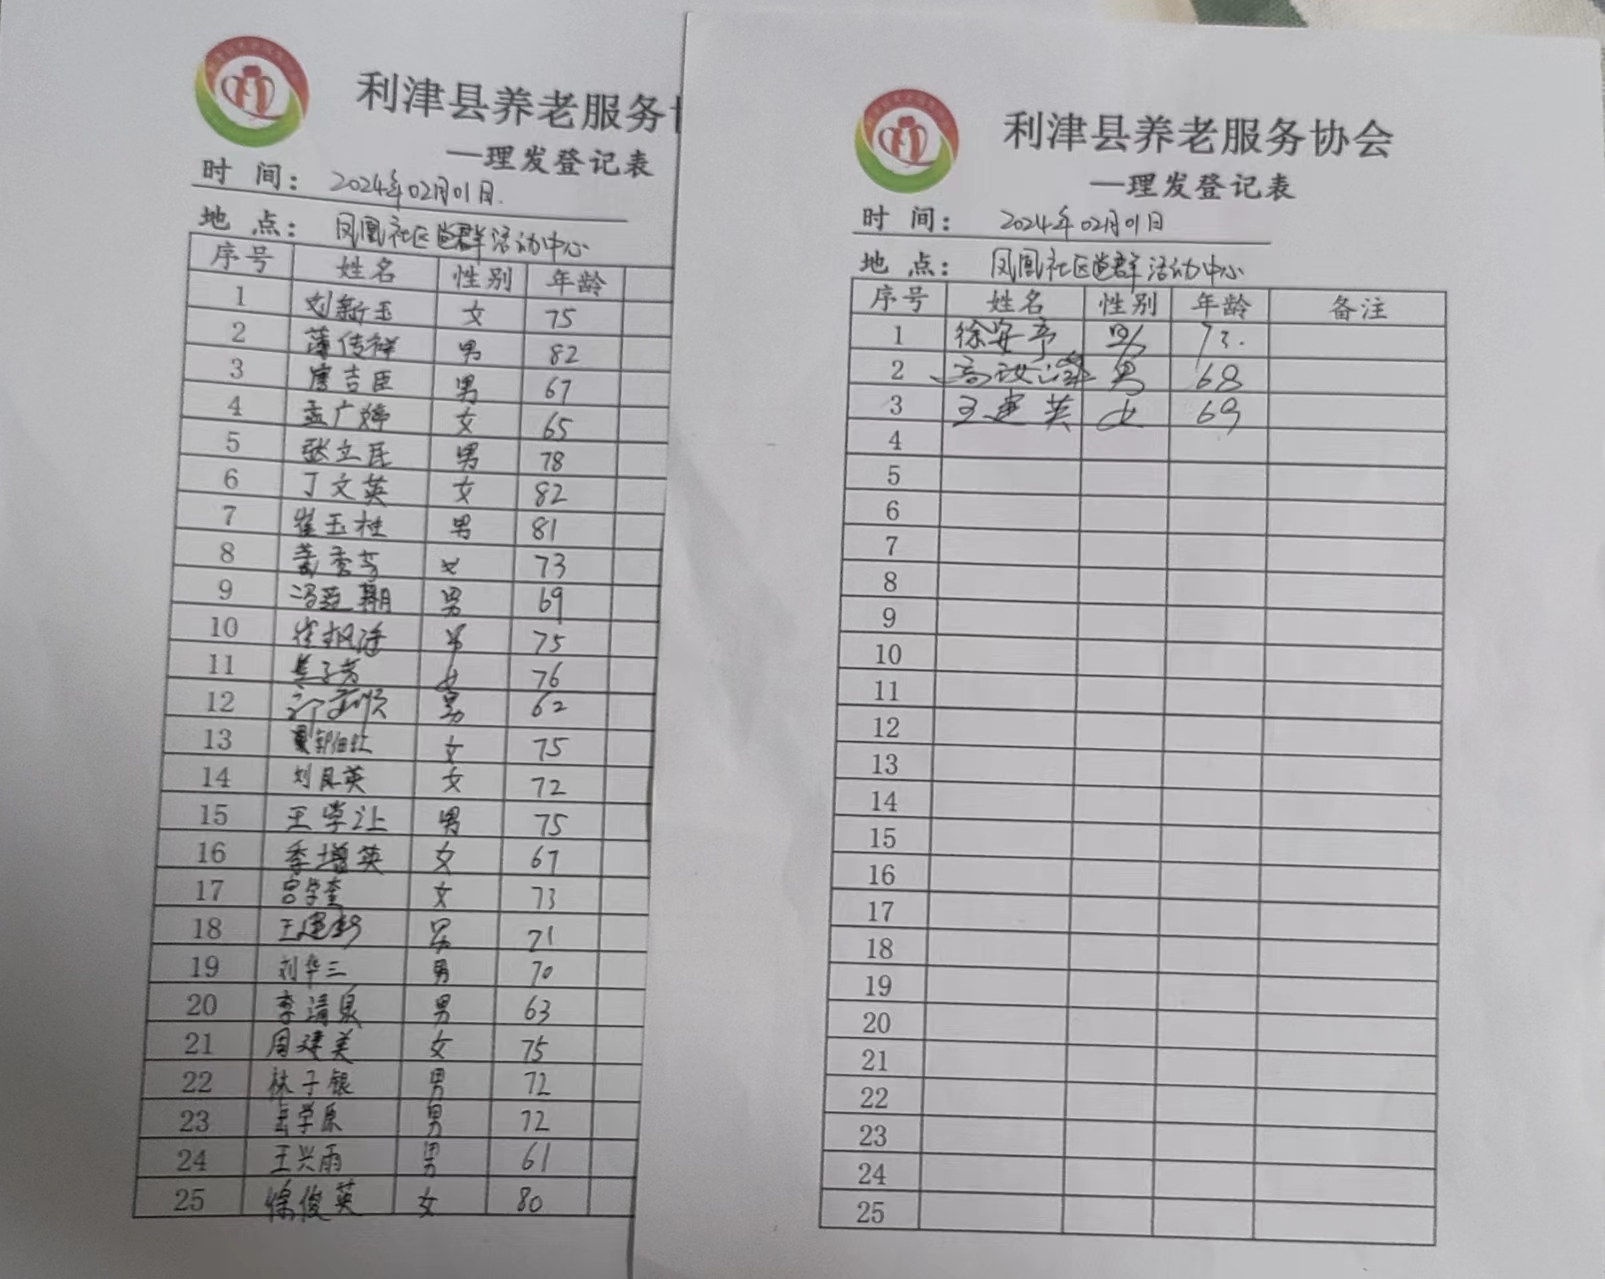 利津县养老服务
一理发登记表
时 间： 2024年02月01日.
地 点： 凤凰社区党群活动中心
序号 姓名 性别 年龄
1 刘新玉 女 75
2 薄传祥 男 82
3 唐吉臣 男 67
4 孟广婷 女 65
5 张立民 男 78
6 丁文英 女 82
7 崔玉柱 男 81
8 姜秀芳 女 73
9 冯 期 男 69
10 崔 男 75
11 女 76
12 顺 男 62
13 女 75
14 刘月英 女 72
15 王学让 男 75
16 季增英 女 67
17 宫学奎 女 73
18 王建 男 71
19 刘华三 男 70
20 李清泉 男 63
21 周建美 女 75
22 林子银 男 72
23 岳学原 男 72
24 王兴雨 男 61
25 徐俊英 女 80
利津县养老服务协会
一理发登记表
时 间： 2024年02月01日
地 点： 凤凰社区党群活动中心
序号 姓名 性别 年龄 备注
1 徐安亭 男 73.
2 高 男 68
3 王建英 女 69
4
5
6
7
8
9
10
11
12
13
14
15
16
17
18
19
20
21
22
23
24
25